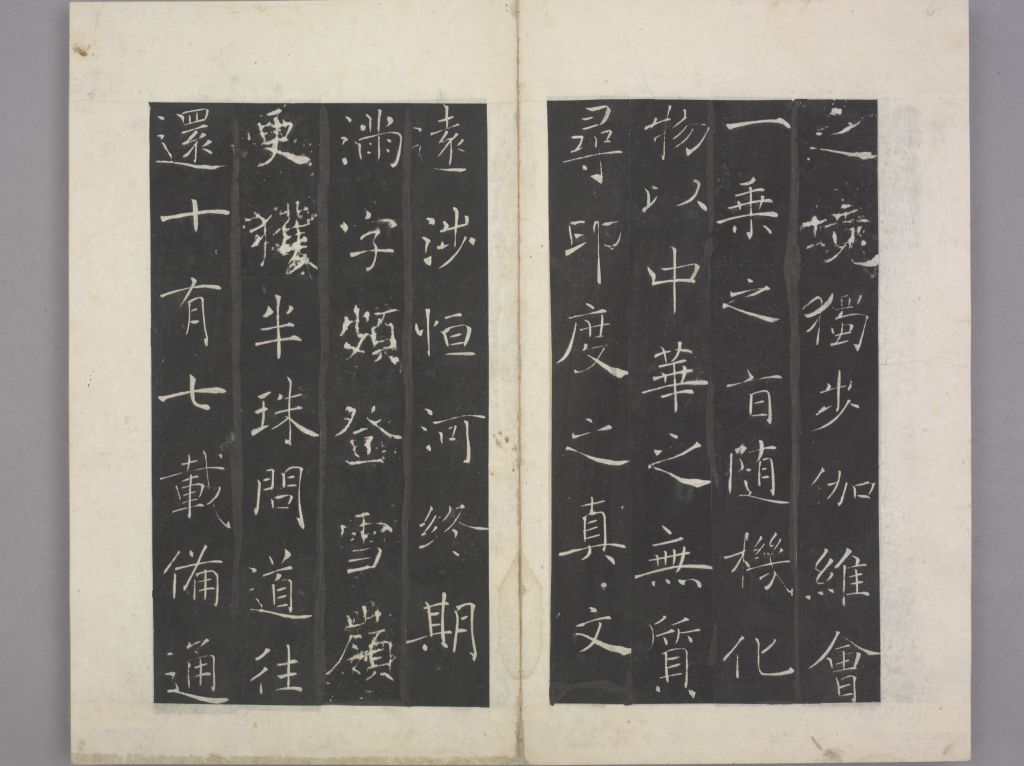 之境獨步伽維會
一乗之旨随機化
物以中華之無質
尋印度之真文
遠涉恒河終期
滿字頻登雪嶺
更獲半珠問道往
還十有七載備通